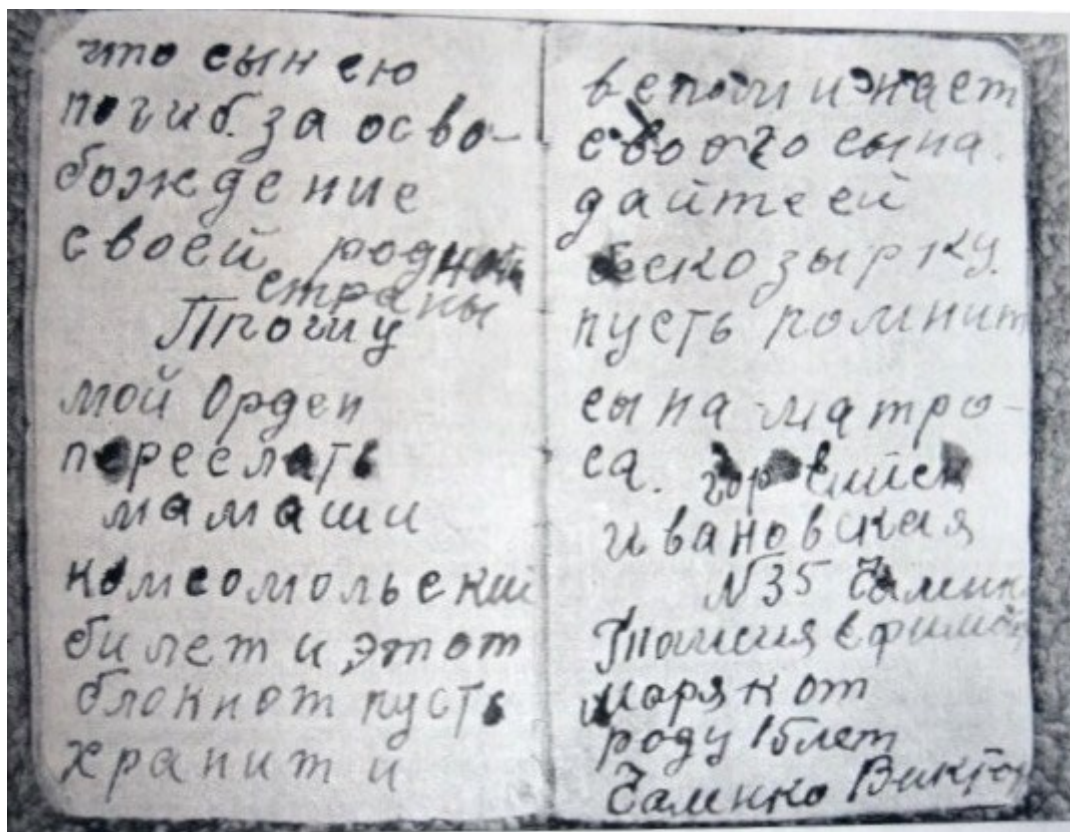 что сын ею
погиб за осво-
бождение
своей родной
страны
Прошу
мой Орден
переслать
мамаши
комсомольский
билет и этот
блокнот пусть
хранит и
вспоминает
своого сына.
дайте ей
бескозырку.
пусть помнит
сына матро-
са. гор
ивановская
N35
Таисия Ефимов
моряк от
роду 15 лет
Чаленко Виктор